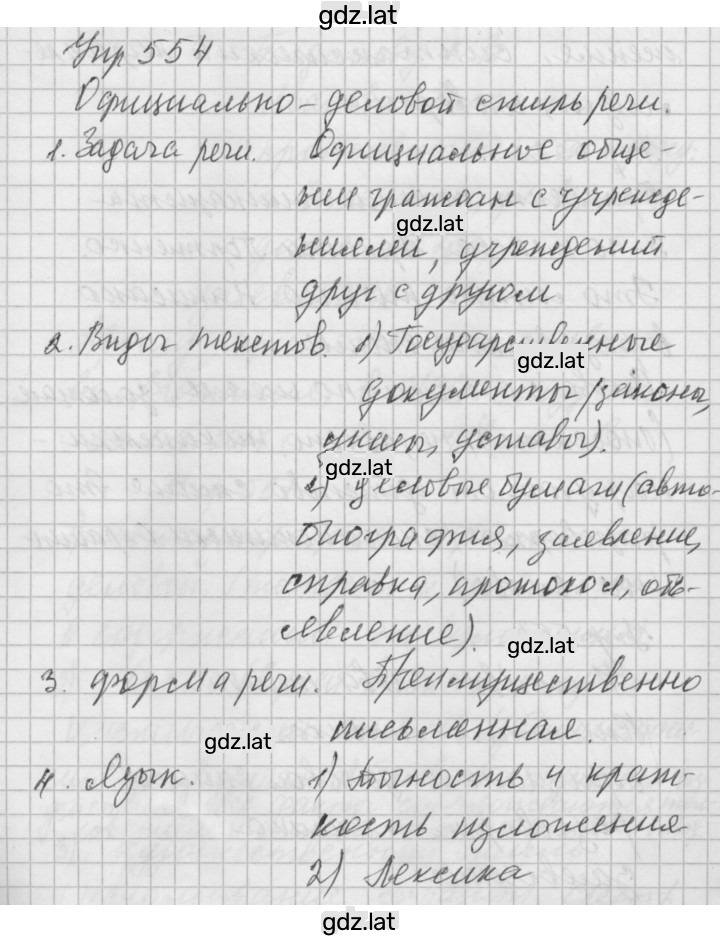 gdz.lat
Упр 554
Официально-деловой стиль речи.
1. Задача речи. Официальное обще-
нии граждан с учрежде-
gdz.lat
ниями, учреждений
друг с другом
2. Виды текстов. 1) Государственные
gdz.lat
документы (законы,
указы, уставы).
gdz.lat
2) деловые бумаги (авто-
биография, заявление,
справка, протокол, объ-
явление).
gdz.lat
3. форма речи. Преимущественно
письменная.
gdz.lat
4. Язык. 1) Точность и крат-
кость изложения
2) Лексика
gdz.lat